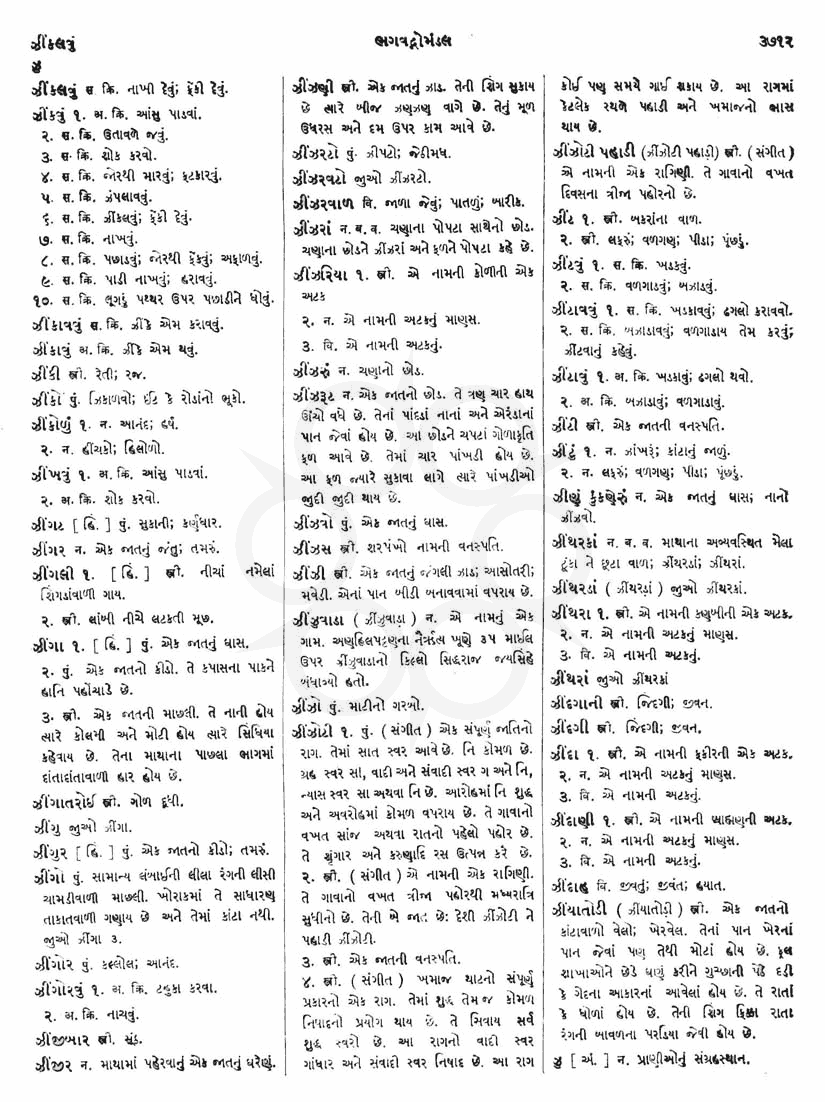 ઝીંકલવું
ભગવદ્ગોમંડલ
૩૭૧૨
ઝુ
ઝીંકલવું સ. ક્રિ. નાખી દેવું; ફેંકી દેવું.
ઝીંકવું ૧. અ. ક્રિ. આંસુ પાડવાં.
૨. સ. ક્રિ. ઉતાવળે જવું.
૩. સ. ક્રિ. શોક કરવો.
૪. સ. ક્રિ. જોરથી મારવું; ફટકારવું.
૫. સ. ક્રિ. ઝંપલાવવું.
૬. સ. ક્રિ. ઝીંકલવું; ફેંકી દેવું.
૭. સ. ક્રિ. નાખવું.
૮. સ. ક્રિ. પછાડવું; જોરથી ફેંકવું; અફાળવું.
૯. સ. ક્રિ. પાડી નાખવું; હરાવવું.
૧૦. સ. ક્રિ. લૂગડું પથ્થર ઉપર પછાડીને ધોવું.
ઝીંકાવવું સ. ક્રિ. ઝીંકે એમ કરાવવું.
ઝીંકાવું અ. ક્રિ. ઝીંકે એમ થવું.
ઝીંકી સ્ત્રી. રેતી; રજ.
ઝીંકો પું. ઝિકાળવો; ઈંટ કે રોડાંનો ભૂકો.
ઝીંકોળું ૧. ન. આનંદ; હર્ષ.
૨. ન. હીંચકો; હિલોળો.
ઝીંખવું ૧. અ. ક્રિ. આંસુ પાડવાં.
૨. અ. ક્રિ. શોક કરવો.
ઝીંગટ [ હિં. ] પું. સુકાની; કર્ણધાર.
ઝીંગર ન. એક જાતનું જંતુ; તમરું.
ઝીંગલી ૧. [ હિં. ] સ્ત્રી. નીચાં નમેલાં
શિંગડાંવાળી ગાય.
૨. સ્ત્રી. લાંબી નીચે લટકતી મૂછ.
ઝીંગા ૧. [ હિં. ] પું. એક જાતનું ઘાસ.
૨. પું. એક જાતનો કીડો. તે કપાસના પાકને
હાનિ પહોંચાડે છે.
૩. સ્ત્રી. એક જાતની માછલી. તે નાની હોય
ત્યારે કોલમી અને મોટી હોય ત્યારે સિંધિયા
કહેવાય છે. તેના માથાના પાછલા ભાગમાં
દાંતાદાંતાવાળી હાર હોય છે.
ઝીંગાતરોઈ સ્ત્રી. ગોળ દૂધી.
ઝીંગુ જુઓ ઝીંગા.
ઝીંગુર [ હિં. ] પું. એક જાતનો કીડો; તમરું.
ઝીંગો પું. સામાન્ય લંબાઈની લીલા રંગની લીસી
ચામડીવાળી માછલી. ખોરાકમાં તે સાધારણ
તાકાતવાળી ગણાય છે અને તેમાં કાંટા નથી.
જુઓ ઝીંગા ૩.
ઝીંગોર પું. કલ્લોલ; આનંદ.
ઝીંગોરવું ૧. અ. ક્રિ. ટહુકા કરવા.
૨. અ. ક્રિ. નાચવું.
ઝીંજીબાર સ્ત્રી. સૂંઠ.
ઝીંજીર ન. માથામાં પહેરવાનું એક જાતનું ઘરેણું.
ઝીંઝણી સ્ત્રી. એક જાતનું ઝાડ. તેની શિંગ સુકાય
છે ત્યારે બીજ ઝણઝણ વાગે છે. તેનું મૂળ
ઉધરસ અને દમ ઉપર કામ આવે છે.
ઝીંઝરટો પું. ઝીપટો; જેઠીમધ.
ઝીંઝરવટો જુઓ ઝીંઝરટો.
ઝીંઝરવાળ વિ. જાળા જેવું; પાતળું; બારીક.
ઝીંઝરાં ન. બ. વ. ચણાના પોપટા સાથેનો છોડ.
ચણાના છોડને ઝીંઝરાં અને ફળને પોપટા કહે છે.
ઝીંઝરિયા ૧. સ્ત્રી. એ નામની કોળીની એક
અટક
૨. ન. એ નામની અટકનું માણસ.
૩. વિ. એ નામની અટકનું.
ઝીંઝરું ન. ચણાનો છોડ.
ઝીંઝરૂટ ન. એક જાતનો છોડ. તે ત્રણ ચાર હાથ
ઊંચો વધે છે. તેનાં પાંદડાં નાનાં અને એરંડાનાં
પાન જેવાં હોય છે. આ છોડને ચપટાં ગોળાકૃતિ
ફળ આવે છે. તેમાં ચાર પાંખડી હોય છે.
આ ફળ જ્યારે સુકાવા લાગે ત્યારે પાંખડીઓ
જુદી જુદી થાય છે.
ઝીંઝવો પું. એક જાતનું ઘાસ.
ઝીંઝસ સ્ત્રી. શરપંખો નામની વનસ્પતિ.
ઝીંઝી સ્ત્રી. એક જાતનું જંગલી ઝાડ; આસોતરી;
મવેડી. એનાં પાન બીડી બનાવવામાં વપરાય છે.
ઝીંઝુવાડા ( ઝીંઝુવાડા ) ન. એ નામનું એક
ગામ. અણહિલપટ્ટણના નૈર્ઋત્ય ખૂણે ૩૫ માઈલ
ઉપર ઝીંઝુવાડાનો કિલ્લો સિદ્ધરાજ જયસિંહે
બંધાવ્યો હતો.
ઝીંઝો પું. માટીનો ગરબો.
ઝીંઝોટી ૧. પું. ( સંગીત ) એક સંપૂર્ણ જાતિનો
રાગ. તેમાં સાત સ્વર આવે છે. નિ કોમળ છે.
ગ્રહ સ્વર સા, વાદી અને સંવાદી સ્વર ગ અને નિ,
ન્યાસ સ્વર સા અથવા નિ છે. આરોહમાં નિ શુદ્ધ
અને અવરોહમાં કોમળ વપરાય છે. તે ગાવાનો
વખત સાંજ અથવા રાતનો પહેલો પહોર છે.
તે શૃંગાર અને કરુણાદિ રસ ઉત્પન્ન કરે છે.
૨. સ્ત્રી. ( સંગીત ) એ નામની એક રાગિણી.
તે ગાવાનો વખત ત્રીજા પહોરથી મધ્યરાત્રિ
સુધીનો છે. તેની બે જાત છે: દેશી ઝીંઝોટી ને
પહાડી ઝીંઝોટી.
૩. સ્ત્રી. એક જાતની વનસ્પતિ.
૪. સ્ત્રી. ( સંગીત ) ખમાજ થાટનો સંપૂર્ણ
પ્રકારનો એક રાગ. તેમાં શુદ્ધ તેમજ કોમળ
નિષાદનો પ્રયોગ થાય છે. તે સિવાય સર્વ
શુદ્ધ સ્વરો છે. આ રાગનો વાદી સ્વર
ગાંધાર અને સંવાદી સ્વર નિષાદ છે. આ રાગ
કોઈ પણ સમયે ગાઈ શકાય છે. આ રાગમાં
કેટલેક સ્થળે પહાડી અને ખમાજનો ભાસ
થાય છે.
ઝીંઝોટી પહાડી (ઝીંઝોટી પહાડી) સ્ત્રી. ( સંગીત )
એ નામની એક રાગિણી. તે ગાવાનો વખત
દિવસના ત્રીજા પહોરનો છે.
ઝીંટ ૧. સ્ત્રી. બકરાંના વાળ.
૨. સ્ત્રી. લફરું; વળગણ; પીડા; પૂંછડું.
ઝીંટવું ૧. સ. ક્રિ. ખડકવું.
૨. સ. ક્રિ. વળગાડવું; બઝાડવું.
ઝીંટાવવું ૧. સ. ક્રિ. ખડકાવવું; ઢગલો કરાવવો.
૨. સ. ક્રિ. બઝાડાવવું; વળગાડાય તેમ કરવું;
ઝીંટવાનું કહેવું.
ઝીંટાવું ૧. અ. ક્રિ. ખડકાવું; ઢગલો થવો.
૨. અ. ક્રિ. બઝાડાવું; વળગાડાવું.
ઝીંટી સ્ત્રી. એક જાતની વનસ્પતિ.
ઝીંટું ૧. ન. ઝાંખરું; કાંટાનું જાળું.
૨. ન. લફરું; વળગણ; પીડા; પૂંછડું.
ઝીણું કુકણેરું ન. એક જાતનું ઘાસ; નાનો
ઝીંઝવો.
ઝીંથરકાં ન. બ. વ. માથાના અવ્યવસ્થિત મેલા
ટૂંકા ને છૂટા વાળ; ઝીંથરડાં; ઝીંથરાં.
ઝીંથરડાં ( ઝીંથરડાં ) જુઓ ઝીંથરકાં.
ઝીંથરા ૧. સ્ત્રી. એ નામની કણબીની એક અટક.
૨. ન. એ નામની અટકનું માણસ.
૩. વિ. એ નામની અટકનું.
ઝીંથરાં જુઓ ઝીંથરકાં
ઝીંદગાની સ્ત્રી. જિંદગી; જીવન.
ઝીંદગી સ્ત્રી. જિંદગી; જીવન.
ઝીંદા ૧. સ્ત્રી. એ નામની ફકીરની એક અટક.
૨. ન. એ નામની અટકનું માણસ.
૩. વિ. એ નામની અટકનું.
ઝીંદાણી ૧. સ્ત્રી. એ નામની બ્રાહ્મણની અટક.
૨. ન. એ નામની અટકનું માણસ.
૩. વિ. એ નામની અટકનું.
ઝીંદાહ વિ. જીવતું; જીવંત; હયાત.
ઝીંયાતોડી ( ઝીંયાતોડી ) સ્ત્રી. એક જાતનો
કાંટાવાળો વેલો; ખેરવેલ. તેનાં પાન ખેરનાં
પાન જેવાં પણ તેથી મોટાં હોય છે. ફૂલ
શાખાઓને છેડે ઘણું કરીને ગુચ્છાની પેઠે દડી
કે ગેંદના આકારનાં આવેલાં હોય છે. તે રાતાં
કે ધોળાં હોય છે. તેની શિંગ ફિક્કા રાતા
રંગની બાવળના પરડિયા જેવી હોય છે.
ઝુ [ અં. ] ન. પ્રાણીઓનું સંગ્રહસ્થાન.